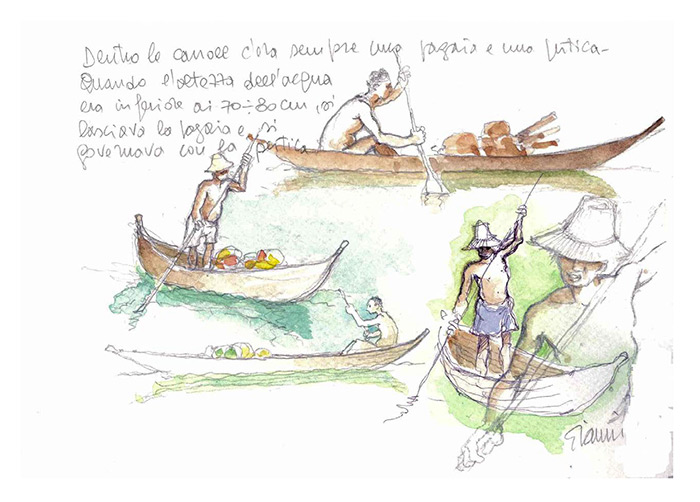 Dentro le canoe c'era sempre una pagaia e una pertica-
Quando l'altezza dell'acqua
era inferiore ai 70÷80 cm, si
lasciava la pagaia e si
governava con la pertica
Gianni